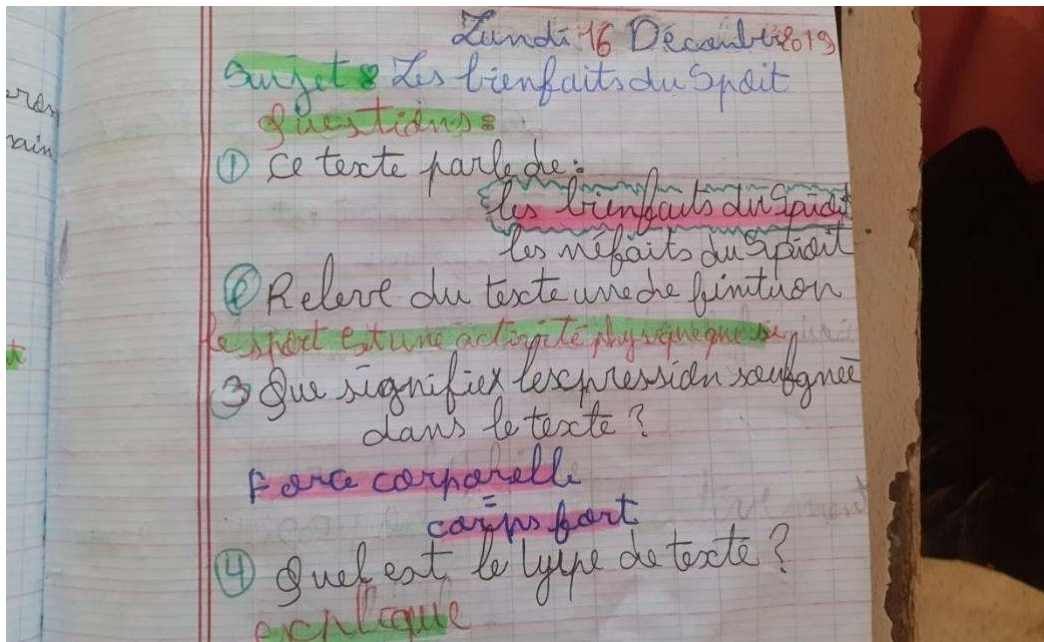 Lundi 16 Décembre 2019
Sujet : Les bienfaits du Sport
Questions :
① Ce texte parle de :
les bienfaits du Sport
les méfaits du Sport
② Relève du texte une définition
le sport est une activité physique que se
③ Que signifiex l'expression soulignée
dans le texte ?
Force corporelle
=
corps fort
④ Quel est le type de texte ?
explique